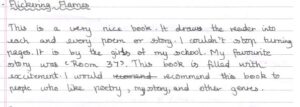 - Flickering Flames
This is a very nice book. It draws the reader into
each and every poem or story. I couldn't stop turning
pages. It is by the girls of my school. My favourite
story was "Room 37?. This book is filled with
excitement. I would recommend this book to
people who like poetry, mystery and other genres.